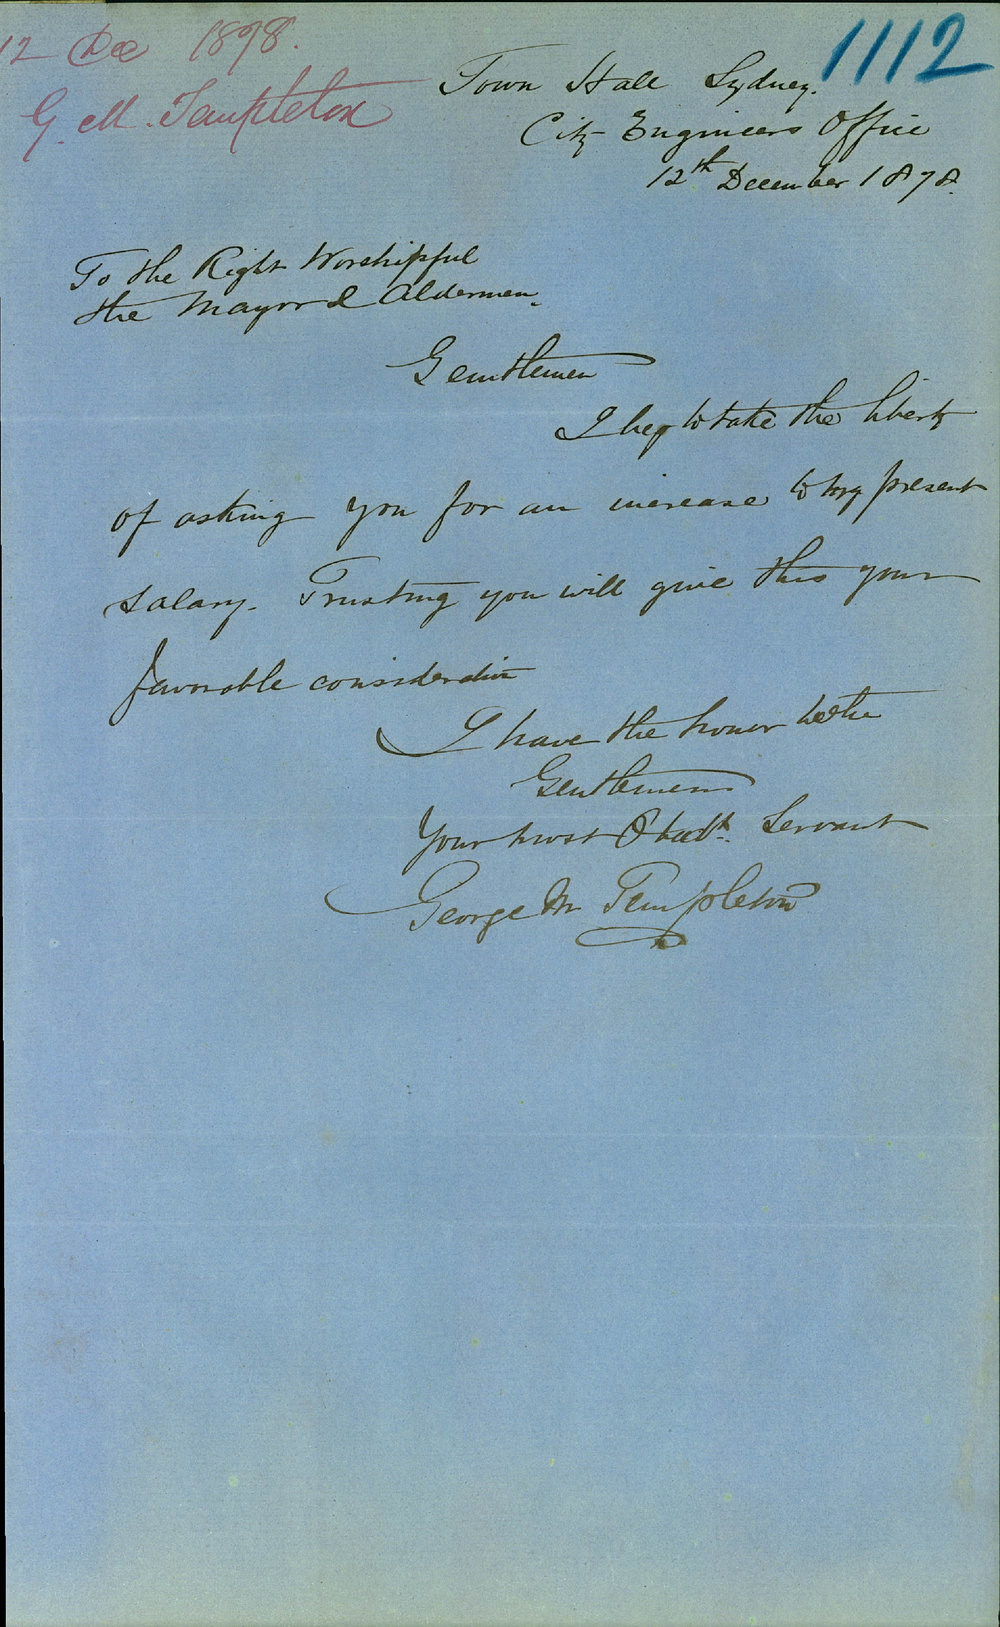 12 Dec 1878.
G. M. Templeton
1112
Town Hall Sydney.
City Engineers Office
12th December 1878.
To the Right Worshipful
the Mayor & Aldermen.
Gentlemen
I beg to take the liberty
of asking you for an increase to my present
salary. Trusting you will give this your
favorable consideration
I have the honor to be
Gentlemen
Your most Obedt. Servant
George M Templeton